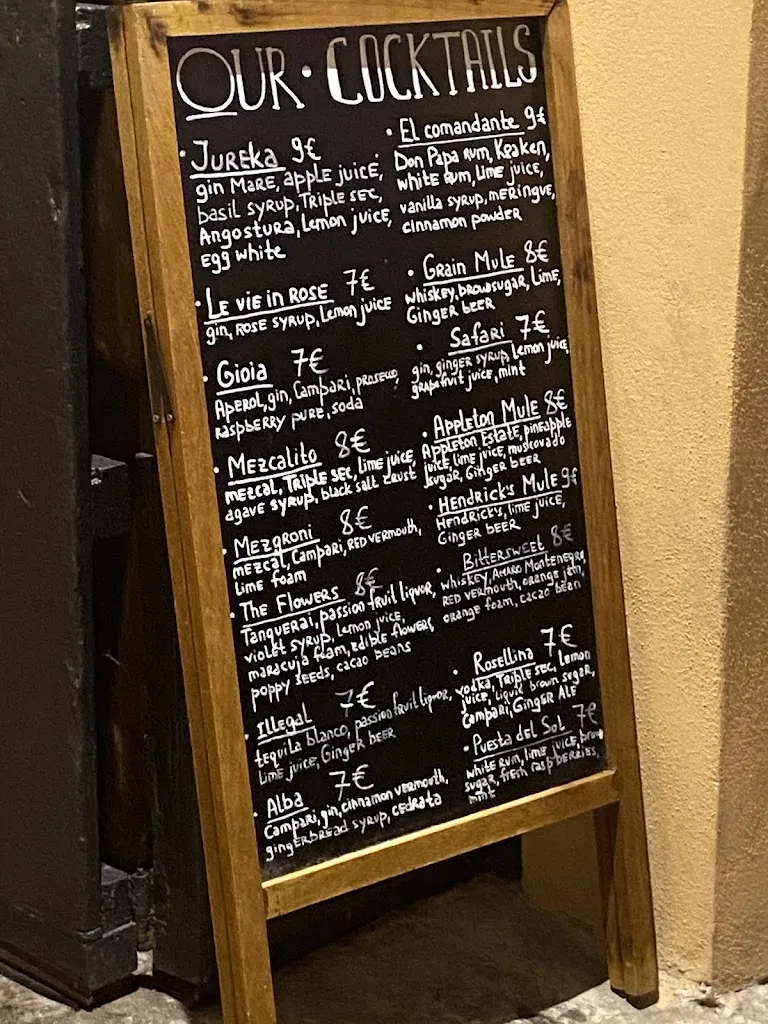 OUR · COCKTAILS
· JUREKA 9€
gin MARE, apple juice,
basil syrup, Triple sec,
Angostura, Lemon juice,
Egg white
· LE VIE in ROSE 7€
gin, ROSE SYRUP, Lemon juice
· Gioia 7€
Aperol, gin, Campari, prosecco,
raspberry pure, soda
· Mezcalito 8€
mezcal, Triple sec, lime juice,
agave syrup, black salt crust
· Mezgroni 8€
mezcal, Campari, RED vermouth,
Lime foam
· The Flowers 8€
Tanquerai, passion fruit liquor,
violet syrup, Lemon juice,
maracuja foam, edible flowers,
poppy seeds, cacao beans
· Illegal 7€
tequila blanco, passion fruit liquor,
Lime juice, Ginger beer
· Alba 7€
Campari, gin, cinnamon vermouth,
gingerbread syrup, cedrata
· El comandante 9€
Don Papa rum, Kraken,
white rum, Lime juice,
vanilla syrup, meringue,
cinnamon powder
· Grain Mule 8€
whiskey, browsugar, Lime,
Ginger beer
· Safari 7€
gin, ginger syrup, Lemon juice,
grapefruit juice, mint
· Appleton Mule 8€
Appleton Estate, pineapple
juice, lime juice, muscovado
sugar, Ginger beer
· Hendrick's Mule 9€
Hendrick's, lime juice,
Ginger beer
· Bittersweet 8€
whiskey, Amaro Montenegro,
RED vermouth, orange jam,
orange foam, cacao bean
· Rosellina 7€
vodka, Triple sec, Lemon
juice, liquid brown sugar,
Campari, Ginger ALE
· Puesta del Sol 7€
white rum, lime juice, brow
sugar, fresh raspberries,
mint